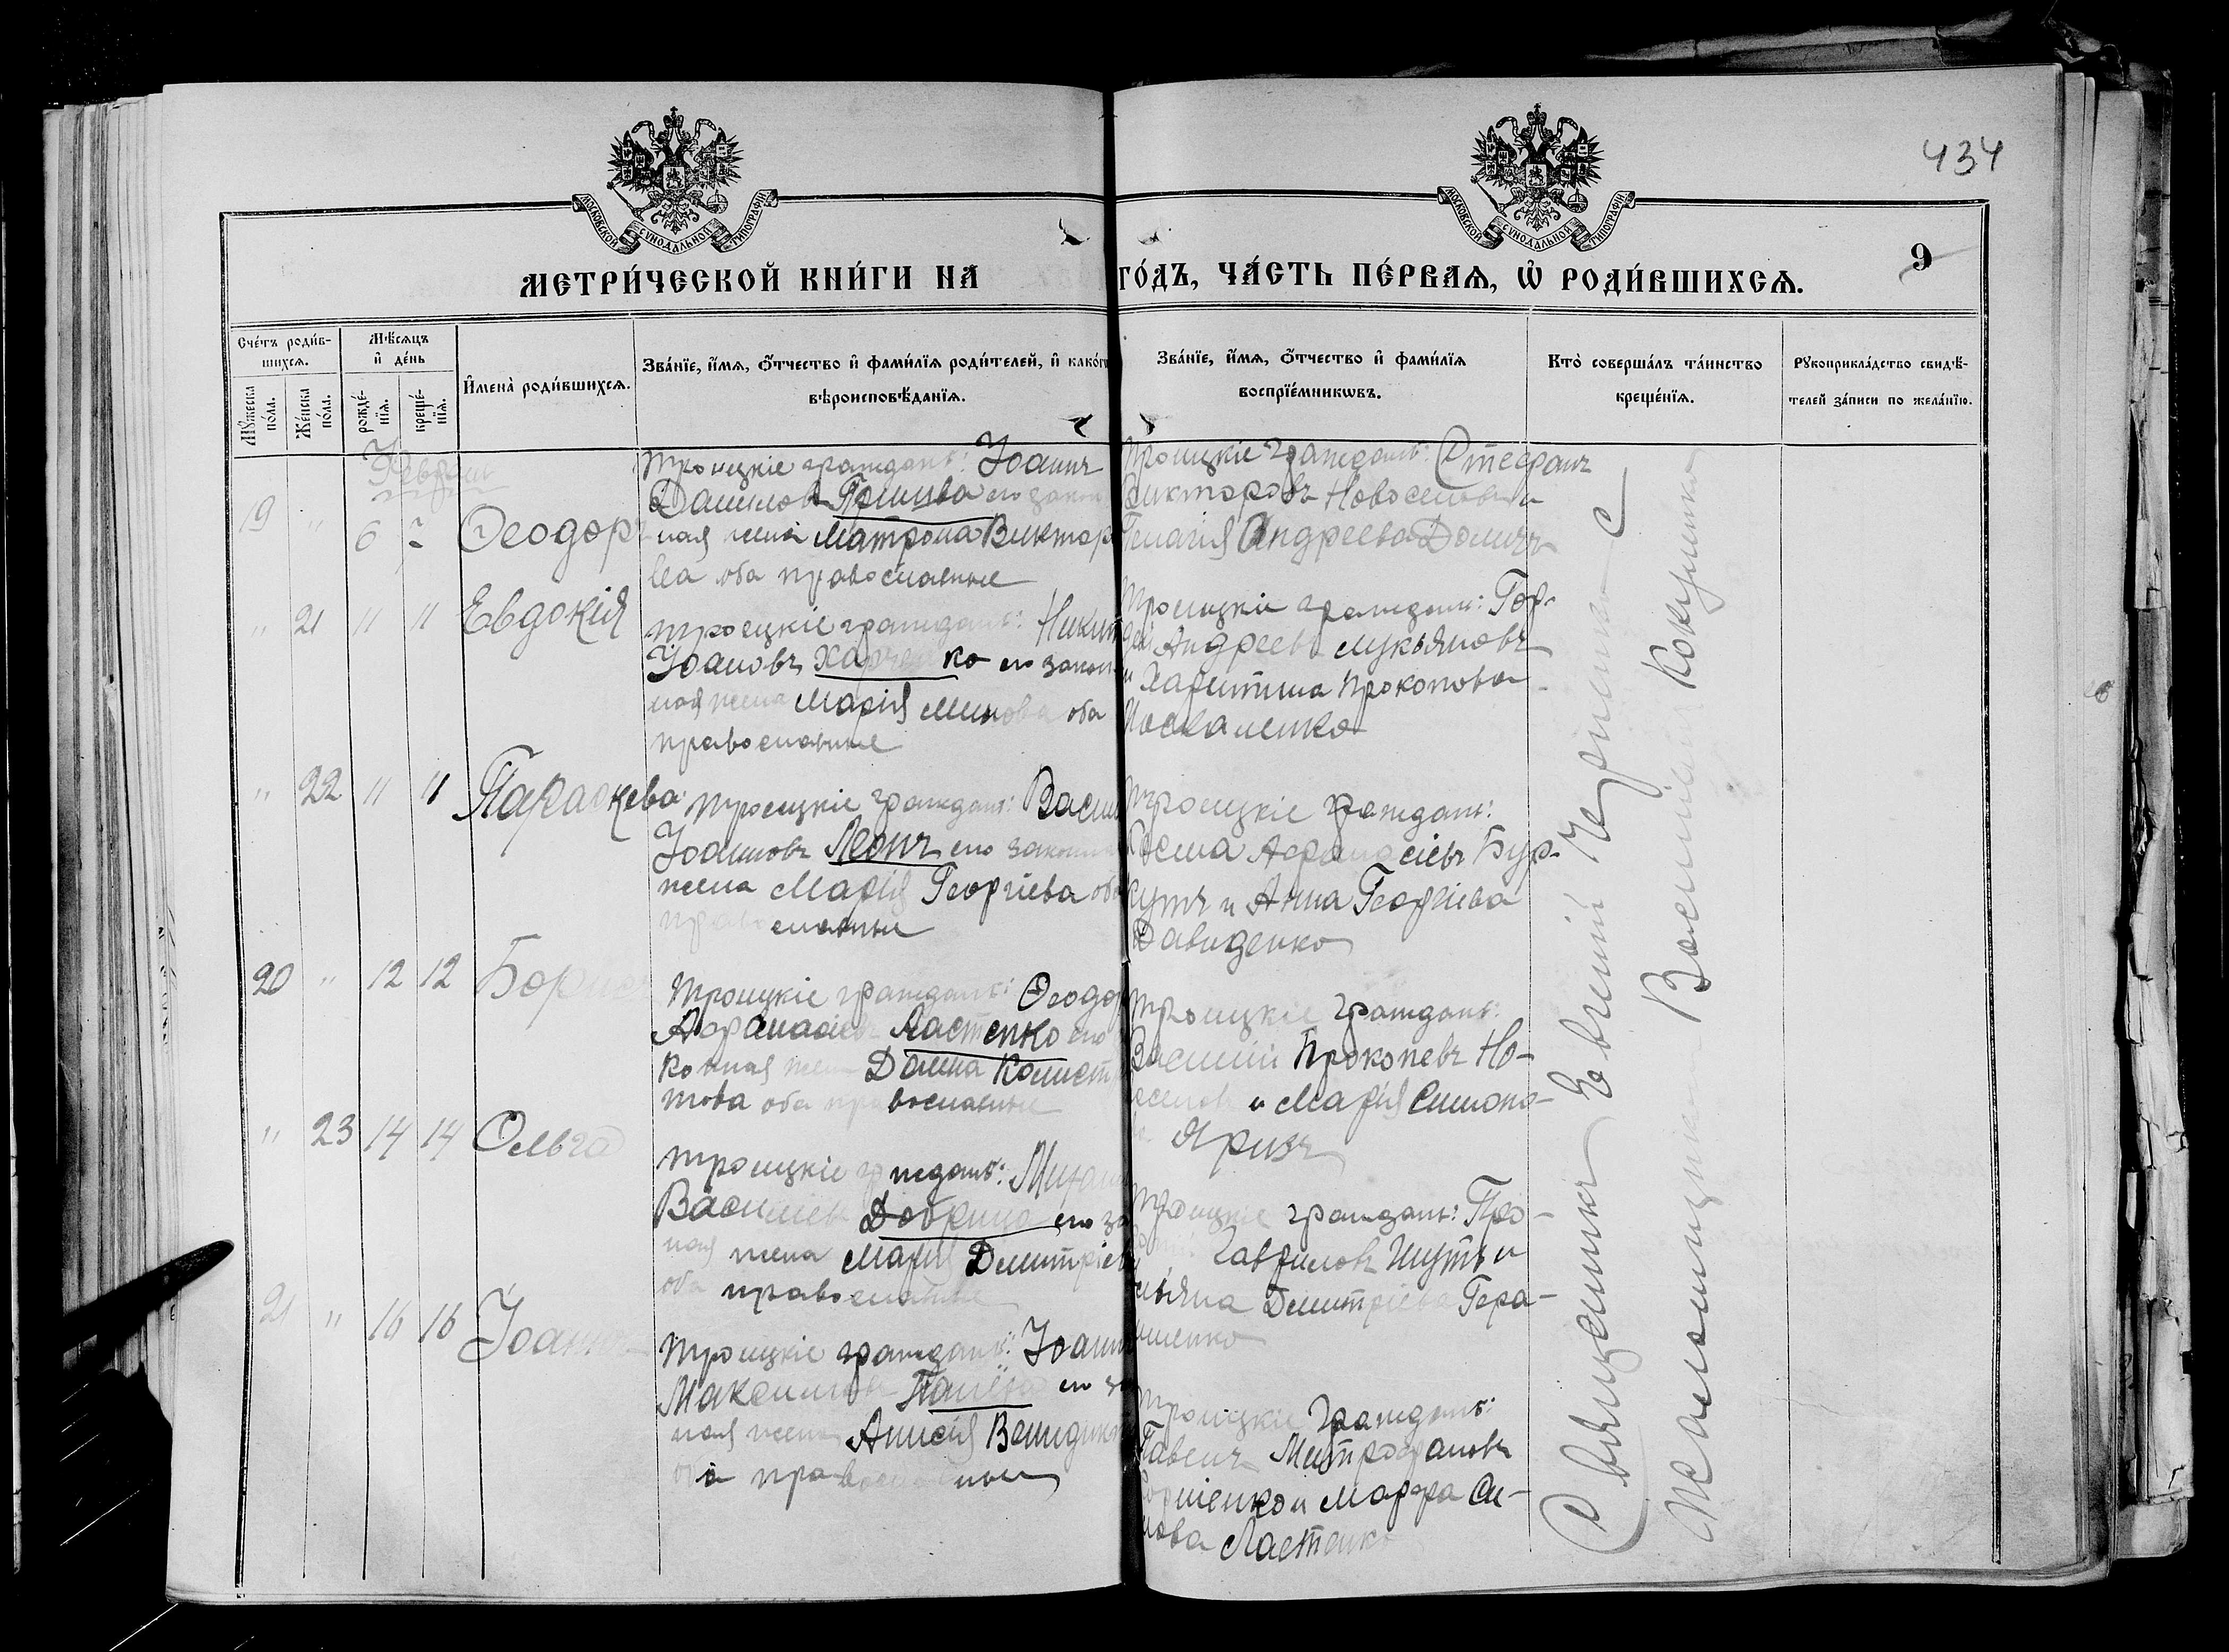 434
МОСКОВСКОЙ СѴНОДАЛЬНОЙ ТИПОГРАФІИ
МОСКОВСКОЙ СѴНОДАЛЬНОЙ ТИПОГРАФІИ
9
МЕТРИ́ЧЕСКОЙ КНИ́ГИ НА ГО́ДЪ, ЧА́СТЬ ПЕ́РВАѦ, Ѡ҆ РОДИ́ВШИХСѦ.
Сче́тъ роди́в-
шихсѧ.
Мꙋ́жеска по́ла.
Же́нска по́ла.
Мѣ́сѧцъ
и҆ де́нь
рожде́-
нїѧ.
креще́-
нїѧ.
И҆мена̀ роди́вшихсѧ.
Зва́нїе, и҆́мѧ, ѻ҆́тчество и҆ фами́лїѧ роди́телей, и҆ како́гѡ
вѣроисповѣ́данїѧ.
Зва́нїе, и҆́мѧ, ѻ҆́тчество и҆ фами́лїѧ
воспрїе́мникѡвъ.
Кто̀ соверша́лъ та́инство
креще́нїѧ.
Рꙋкоприкла́дство свидѣ́-
телей за́писи по жела́нїю.
Февраль
19 " 6 Ѳеодоръ
Троицкіе граждане: Іоаннъ
Даниловъ его закон
ная жена Матрона Виктор
ва оба православные
Троицкіе граждане: Стефанъ
Викторовъ Новоселовъ и
Пелагія Андреева
" 21 " " Евдокія
Троецкіе граждане: Никит
Іоановъ Харченко его закон
ная жена Марія оба
православные
Троицкіе граждане: Гор-
дей Андреевъ Лукьяновъ
и Харитина Прокопова
Москаленко
" 22 " " Параскева
Троецкіе граждане: Васил
Іоанновъ Леонъ его законная
жена Марія Георгіева оба
православные
Троицкіе граждане:
Косма Афанасіевъ Бур-
кутъ и Анна Георгіева
Давиденко
20 " 12 12 Борисъ
Троицкіе граждане: Ѳеодор
Афанасіевъ Ластенко его
конная жена Домна
това оба православные
Троицкіе граждане:
Василій Прокопевъ Но-
воселовъ и Марія Симоно-
" 23 14 14 Ольга
Троицкіе граждане: Михаил
Васильевъ его за
ная жена Марія Димитріев
оба православные
Троицкіе граждане: Про-
Гавриловъ Шутъ и
Димитріева Гера-
щенко
21 " 16 16 Іоаннъ
Троицкіе граждане: Іоанн
Максимовъ его за
ная жена Анисія Венидикт
оба православные
Троицкіе граждане:
Павелъ Митрофановъ
и Марфа Си-
мова Ластенко
Священникъ Евгеній
Псаломщикъ Василій